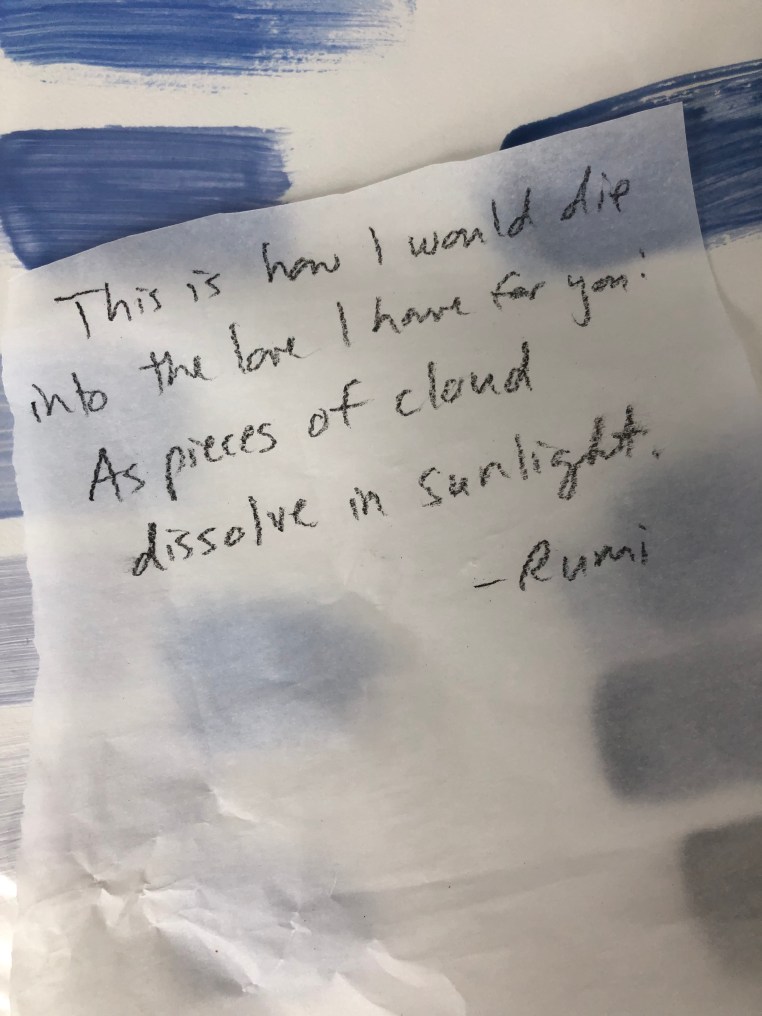 This is how I would die
into the love I have for you:
As pieces of cloud
dissolve in sunlight.
- Rumi